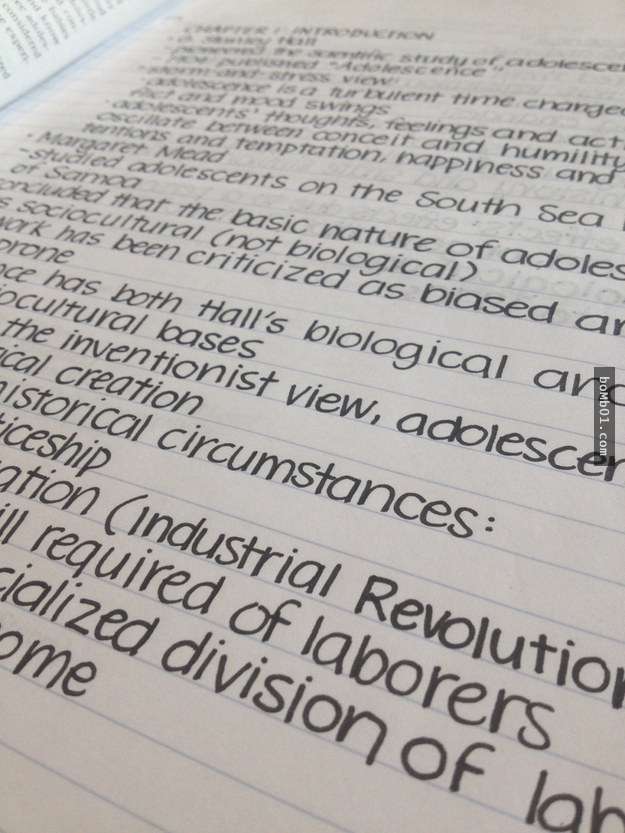 CHAPTER 1: INTRODUCTION
Stanley Hall
pioneered the scientific study of adolescen
published "Adolescence"
storm-and-stress view
adolescence is a turbulent time charged
and mood swings
adolescents' thoughts, feelings and act
oscillate between conceit and humility
tentions and temptation, happiness and
· Margaret Mead
-studied adolescents on the South Sea
of Samoa
oncluded that the basic nature of adoles
s sociocultural (not biological)
work has been criticized as biased an
prone
nce has both Hall's biological and
iocultural bases
the inventionist view, adolescen
ical creation
historical circumstances:
ticeship
ation (Industrial Revolution
ill required of laborers
cialized division of lab
ome
bomb01.com